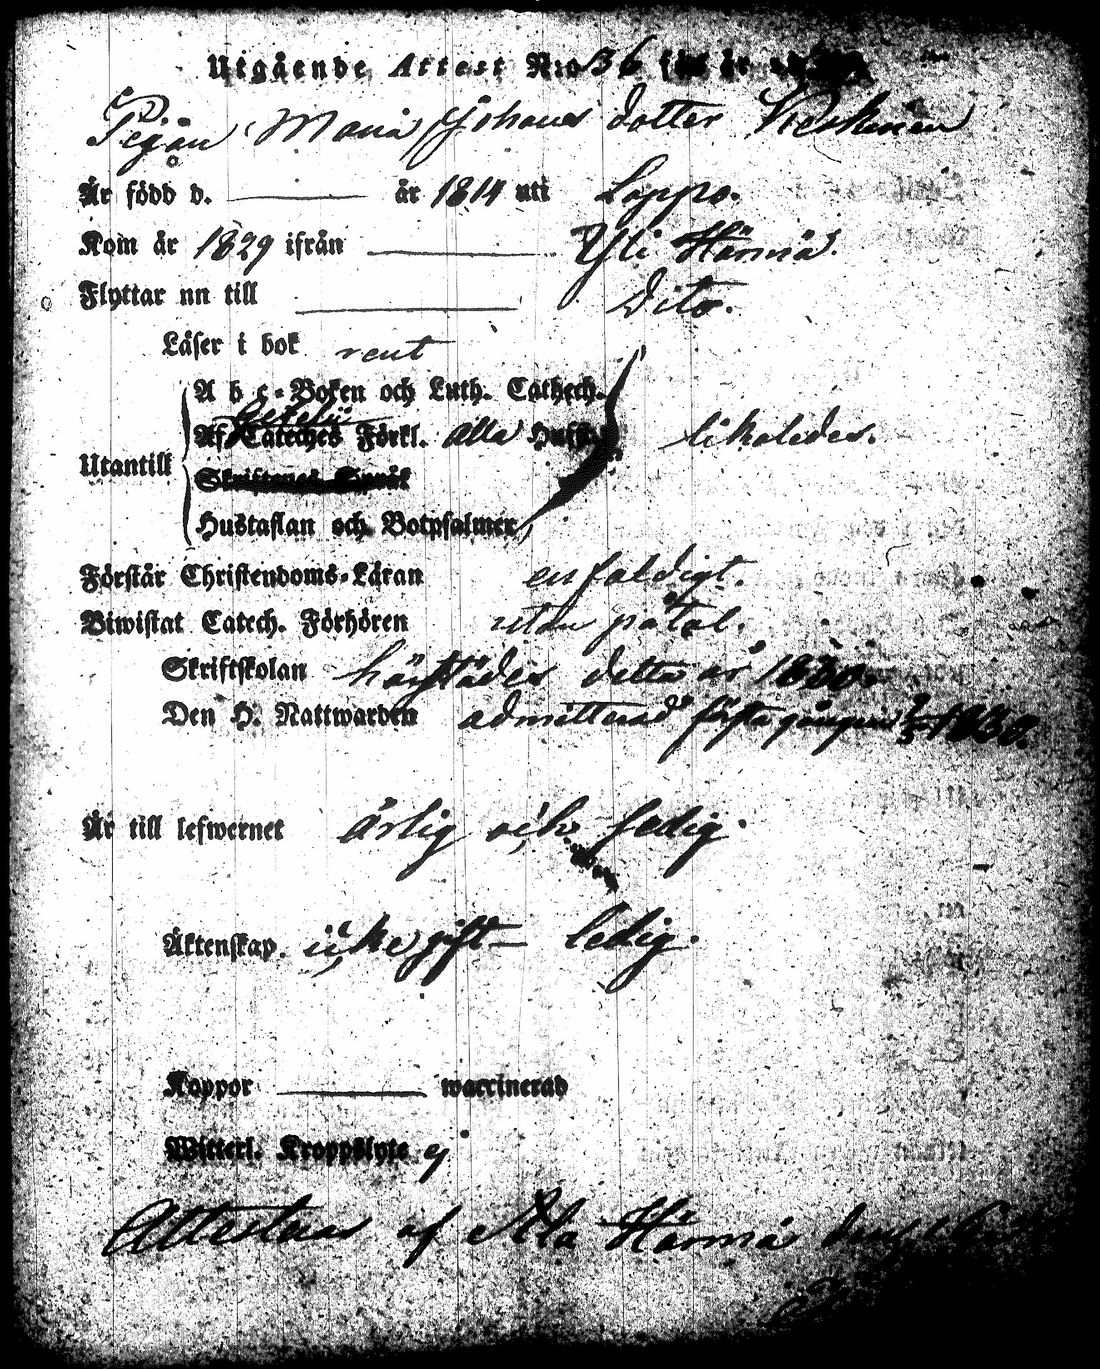 Utgående Attest N:o 36 för år
Pegån Maria Johans dotter Keskinen
Är född d. år 1814 uti Lappo.
Kom år 1829 ifrån Yli Härmä.
Flyttar nu till Dito.
Läser i bok rent
A b c-Boken och Luth. Catech.
Af Cateches Förkl. Alla Hufst. likaledes.
Utantill
Skriftenes Språk
Hustaflan och Botpsalmer
Förstår Christendoms-Läran enfaldigt.
Biwistat Catech. Förhören utan påtal.
Skriftskolan härstädes detta år 1830.
Den H. Nattwarden admitterad första gången 1830.
Är till lefwernet ärlig och sedig.
Äktenskap. icke gift — ledig.
Koppor waccinerad
Witterl. Kroppslyte ej
Attesteras af Ala Härmä den